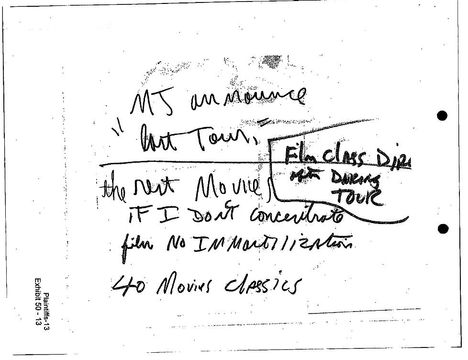 MJ announce
"last Tour,"
Film Class Dir
DURING
TOUR
the rest Movies
IF I Don't concentrate
film No IMMortilization
40 Movies Classics
Plaintiffs-13
Exhibit 50 - 13